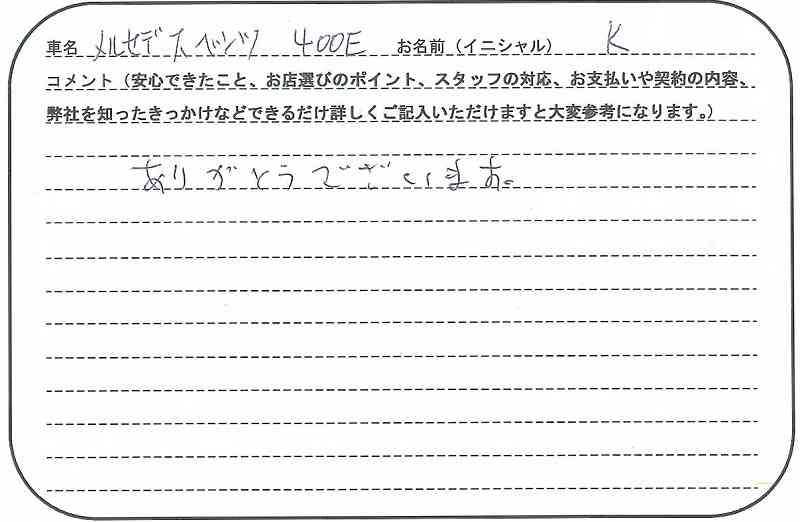 車名 メルセデスベンツ 400E お名前（イニシャル） K
コメント（安心できたこと、お店選びのポイント、スタッフの対応、お支払いや契約の内容、
弊社を知ったきっかけなどできるだけ詳しくご記入いただけますと大変参考になります。）
ありがとうでございます。